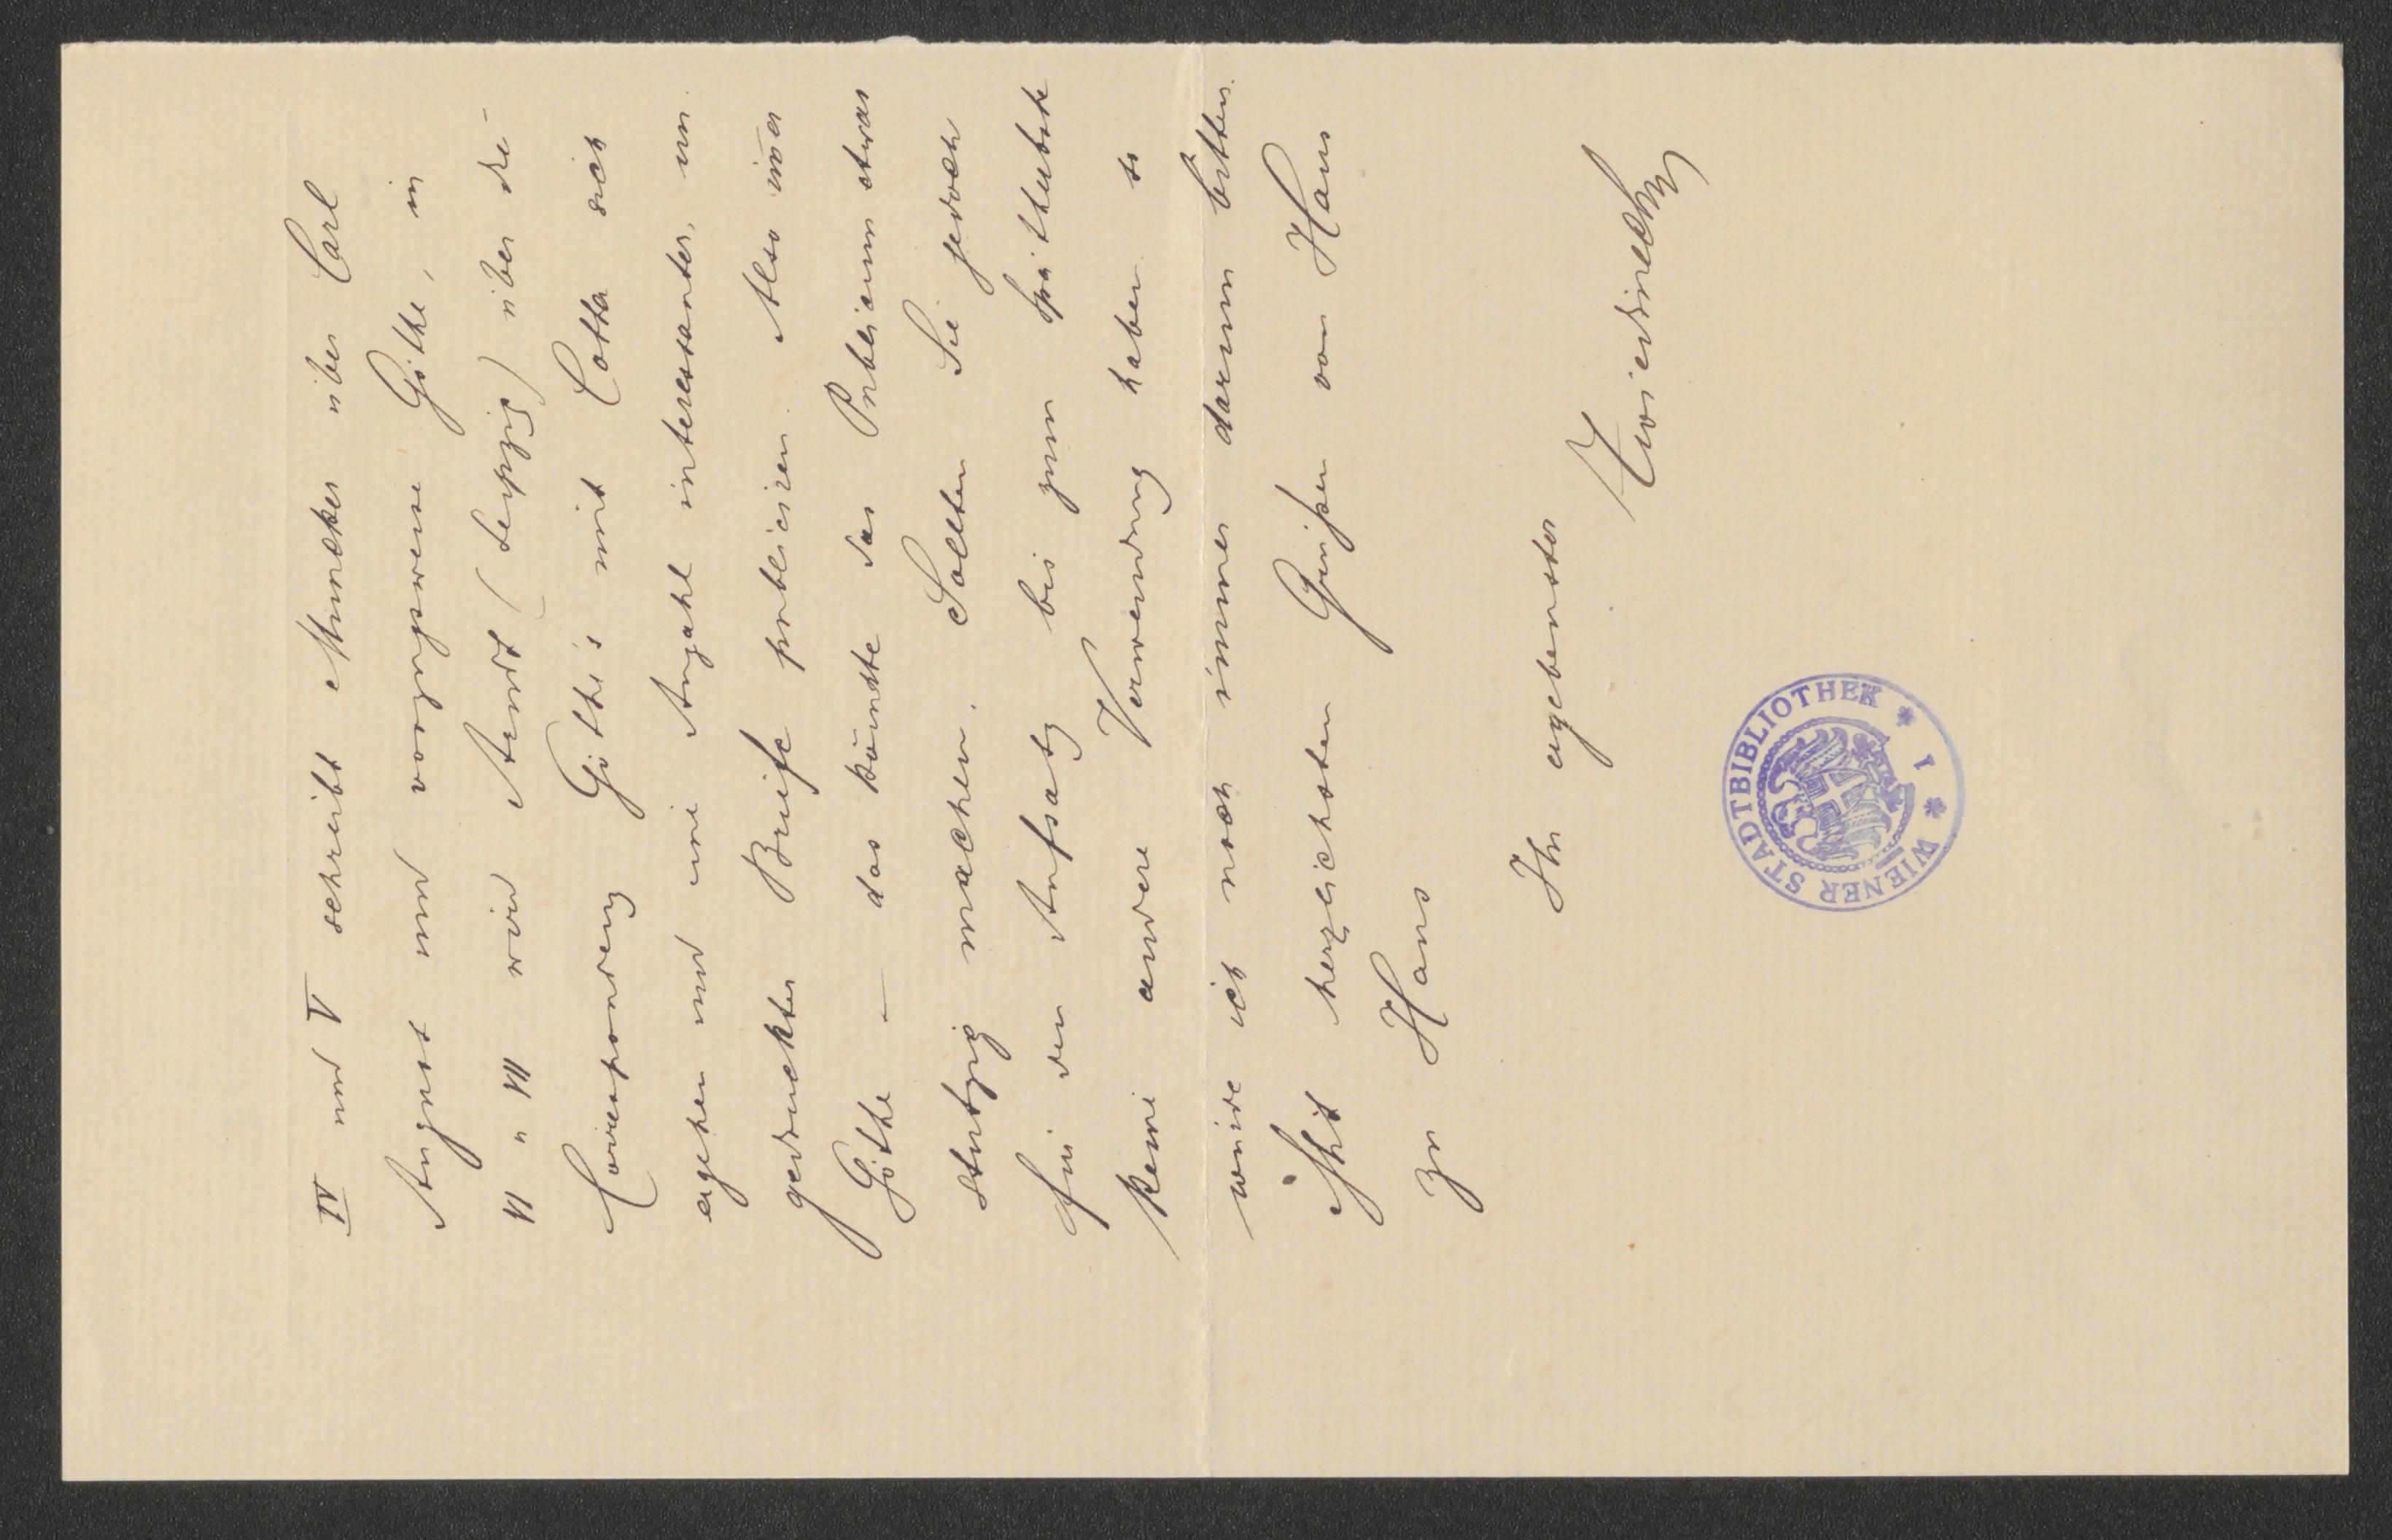 IV und V schreibt Muncker über Carl
August und vorzugsweise Göthe, in
VI u VII wird Arndt (Leipzig) über die
Correspondenz Göthe's mit Cotta sich
ergehen und eine Anzahl interessanter, un
gedruckter Briefe publiciren. Also im̄er
Göthe — das könnte das Publicum etwas
stutzig machen. Sollten Sie jedoch
für den Aufsatz bis zum Spätherbste
keine andere Verwendung haben so
würde ich noch immer darum bitten.
Mit herzlichsten Grüßen von Haus
zu Haus
Ihr ergebenster
Zwiedineck
WIENER STADTBIBLIOTHEK * 1 *